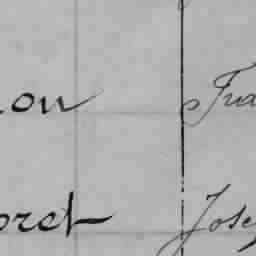 ion Fra
oret Josep